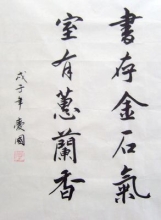 書存金石氣
室有蕙蘭香
戊子年 慶國